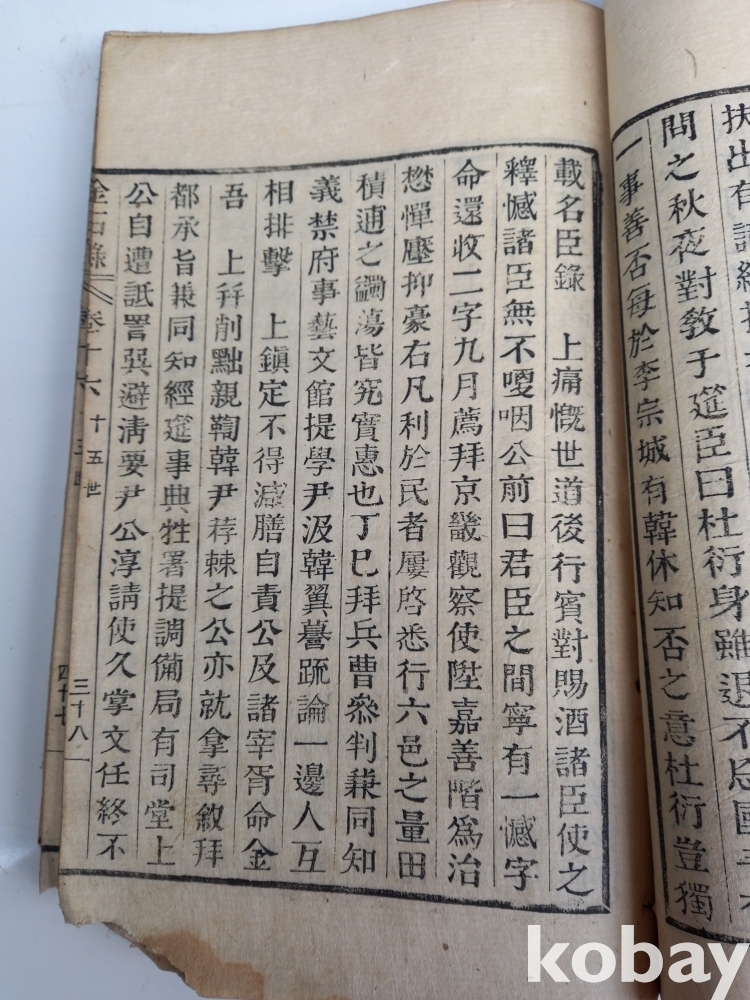 扶出有
問之秋夜對教于筵臣曰杜衍身雖退不忘國
一事善否每於李宗城有韓休知否之意杜衍豈獨
載名臣錄 上痛慨世道後行賓對賜酒諸臣使之
釋憾諸臣無不嗄咽公前曰君臣之間寧有一憾字
命還收二字九月薦拜京畿觀察使陞嘉善階爲治
愗憚壓抑豪右凡利於民者屢啓悉行六邑之量田
積逋之蠲蕩皆究實惠也丁巳拜兵曹叅判兼同知
義禁府事藝文館提學尹汲韓翼謩疏論一邊人互
相排擊 上鎭定不得減膳自責公及諸宰胥命金
吾 上幷削黜親鞫韓尹荐棘之公亦就拿尋敘拜
都承旨兼同知經筵事典牲署提調備局有司堂上
公自遭詆詈巽避淸要尹公淳請使久掌文任終不
金石錄 卷十六 十五世 三十八
四十七
kobay